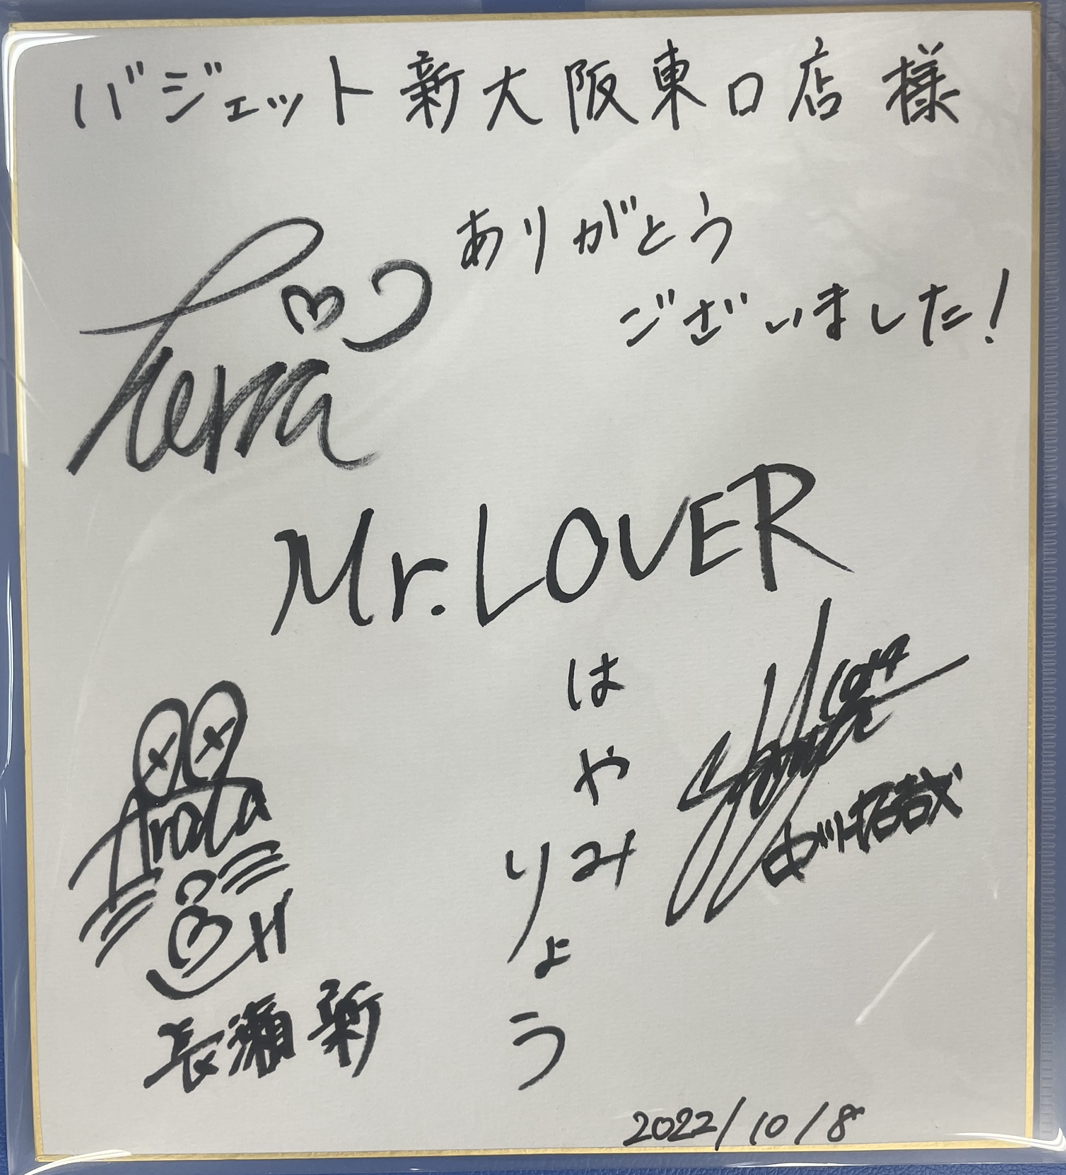 バジェット新大阪東口店 様
ありがとう
ございました!
Terra
Mr.LOVER
はやみ
りょう
Arata
長瀬 新
2022/10/8